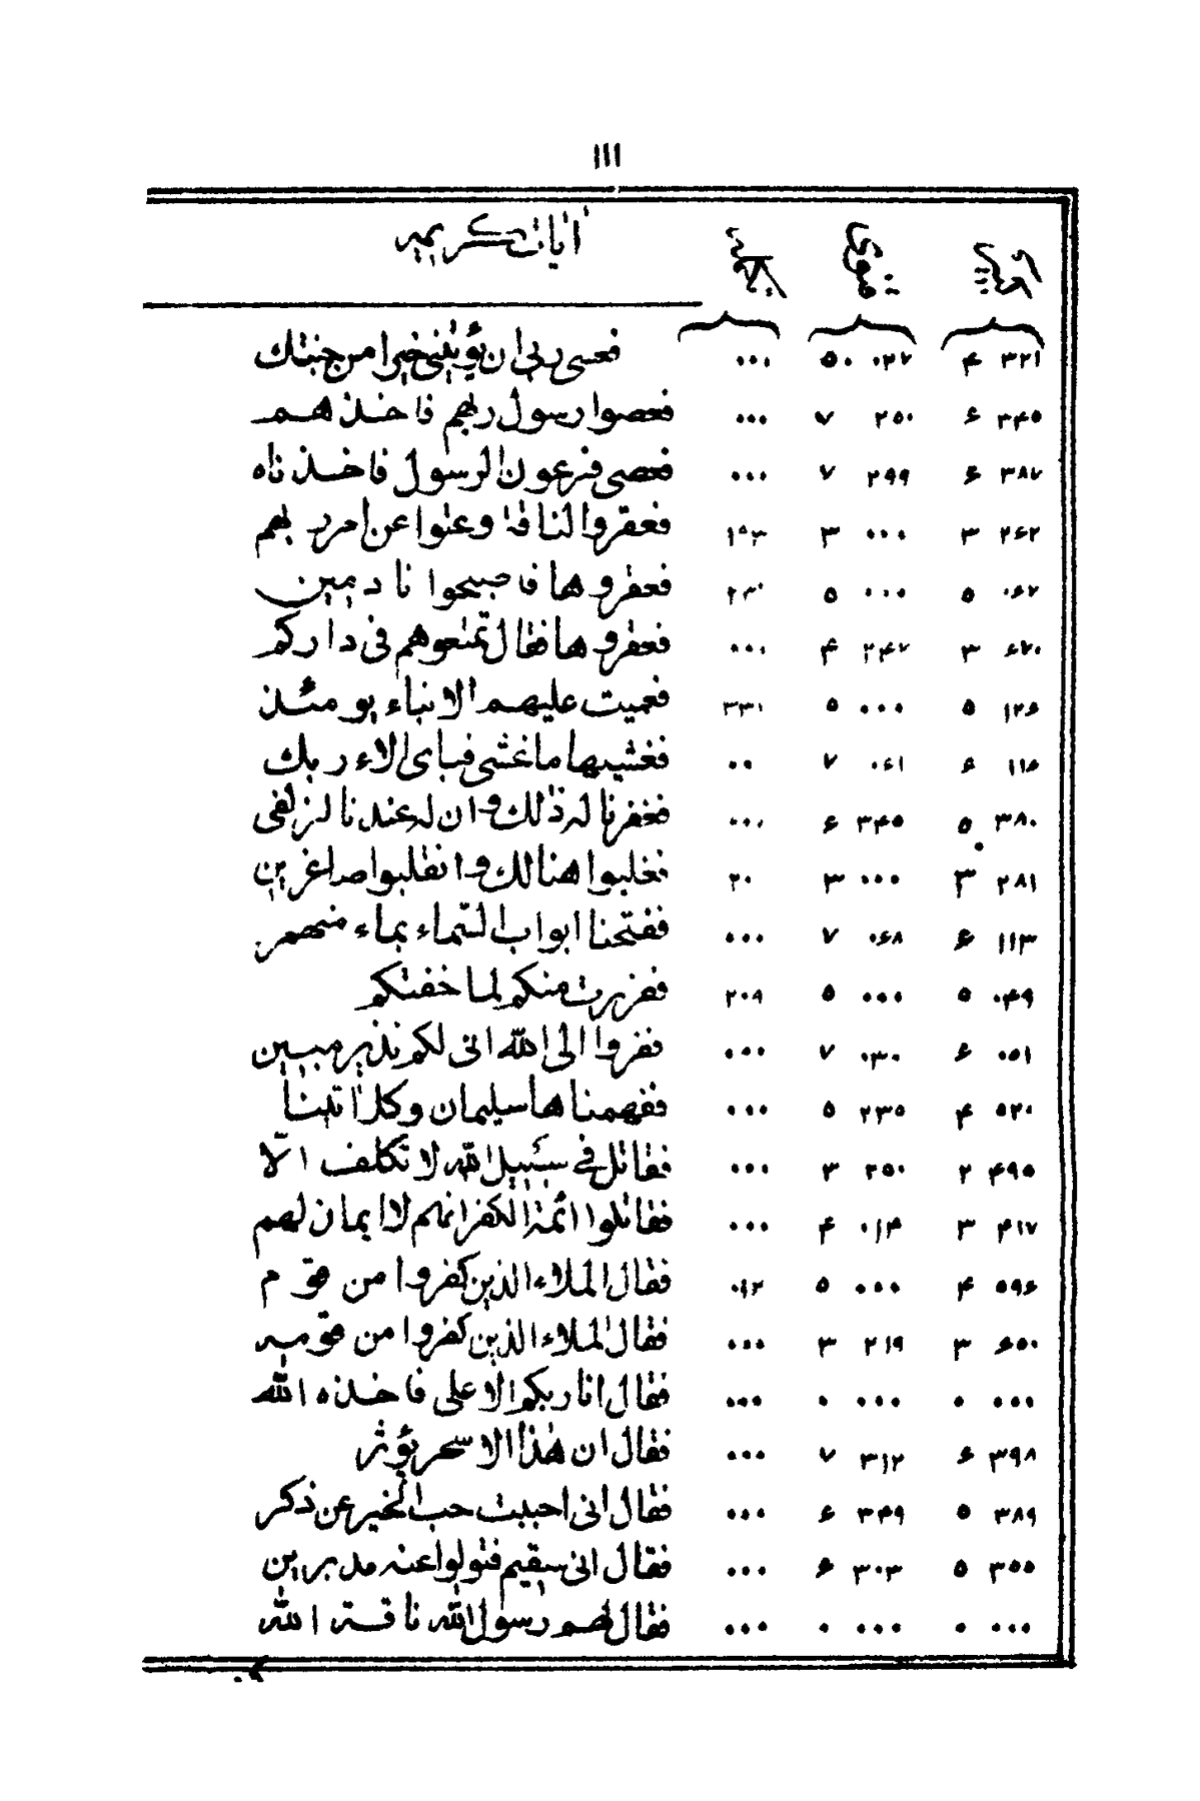 ١١١
اٰیات کریمه
۳۲۱ ۴ ۰۲۷ ۵۰ ۰۰۰ فعسی ربی ان یؤتینی خیرا من جنتك
۳۴۵ ۶ ۲۵۰ ۷ ۰۰۰ فعصوا رسول ربهم فاخذهم
۳۸۷ ۶ ۲۹۹ ۷ ۰۰۰ فعصی فرعون الرسول فاخذناه
۲۶۲ ۳ ۰۰۰ ۳ ۱۵۳ فعقروا الناقة وعتوا عن امر ربهم
۰۶۷ ۵ ۰۰۰ ۵ ۲۳۰ فعقروها فاصبحوا نادمین
۶۷۰ ۳ ۲۴۷ ۴ ۰۰۰ فعقروها فقال تمتعوهم فی دارکم
۱۲۶ ۵ ۰۰۰ ۵ ۳۳۱ فعمیت علیهم الانباء یومئذ
۱۱۵ ۶ ۰۶۱ ۷ ۰۰ فغشیها ما غشی فبای الاء ربك
۳۸۰ ۵ ۳۴۵ ۶ ۰۰۰ فغفرنا له ذالك وان له عندنا لزلفی
۲۸۱ ۳ ۰۰۰ ۳ ۲۰ فغلبوا هنالك وانقلبوا صاغرین
۱۱۳ ۶ ۰۶۸ ۷ ۰۰۰ ففتحنا ابواب السماء بماء منهمر
۰۴۹ ۵ ۰۰۰ ۵ ۲۰۹ ففررت منکم لما خفتکم
۰۵۱ ۶ ۰۳۰ ۷ ۰۰۰ ففروا الی الله انی لکم نذیر مبین
۵۲۰ ۴ ۲۳۵ ۵ ۰۰۰ ففهمناها سلیمان وکلا اتینا
۴۹۵ ۲ ۲۵۰ ۳ ۰۰۰ فقاتل فی سبیل الله لا تکلف الّا
۴۱۷ ۳ ۰۱۴ ۴ ۰۰۰ فقاتلوا ائمة الکفر انهم لا ایمان لهم
۵۹۶ ۴ ۰۰۰ ۵ ۰۹۲ فقال الملاء الذین کفروا من قوم
۶۵۰ ۳ ۲۱۹ ۳ ۰۰۰ فقال الملاء الذین کفروا من قومه
۰۰۰ ۰ ۰۰۰ ۰ ۰۰۰ فقال انا ربکم الاعلی فاخذه الله
۳۹۸ ۶ ۳۱۲ ۷ ۰۰۰ فقال ان هذا الا سحر یؤثر
۳۸۹ ۵ ۳۴۹ ۶ ۰۰۰ فقال انی احببت حب الخیر عن ذکر
۳۵۵ ۵ ۳۰۳ ۶ ۰۰۰ فقال انی سقیم فتولوا عنه مدبرین
۰۰۰ ۰ ۰۰۰ ۰ ۰۰۰ فقال لهم رسول الله ناقة الله